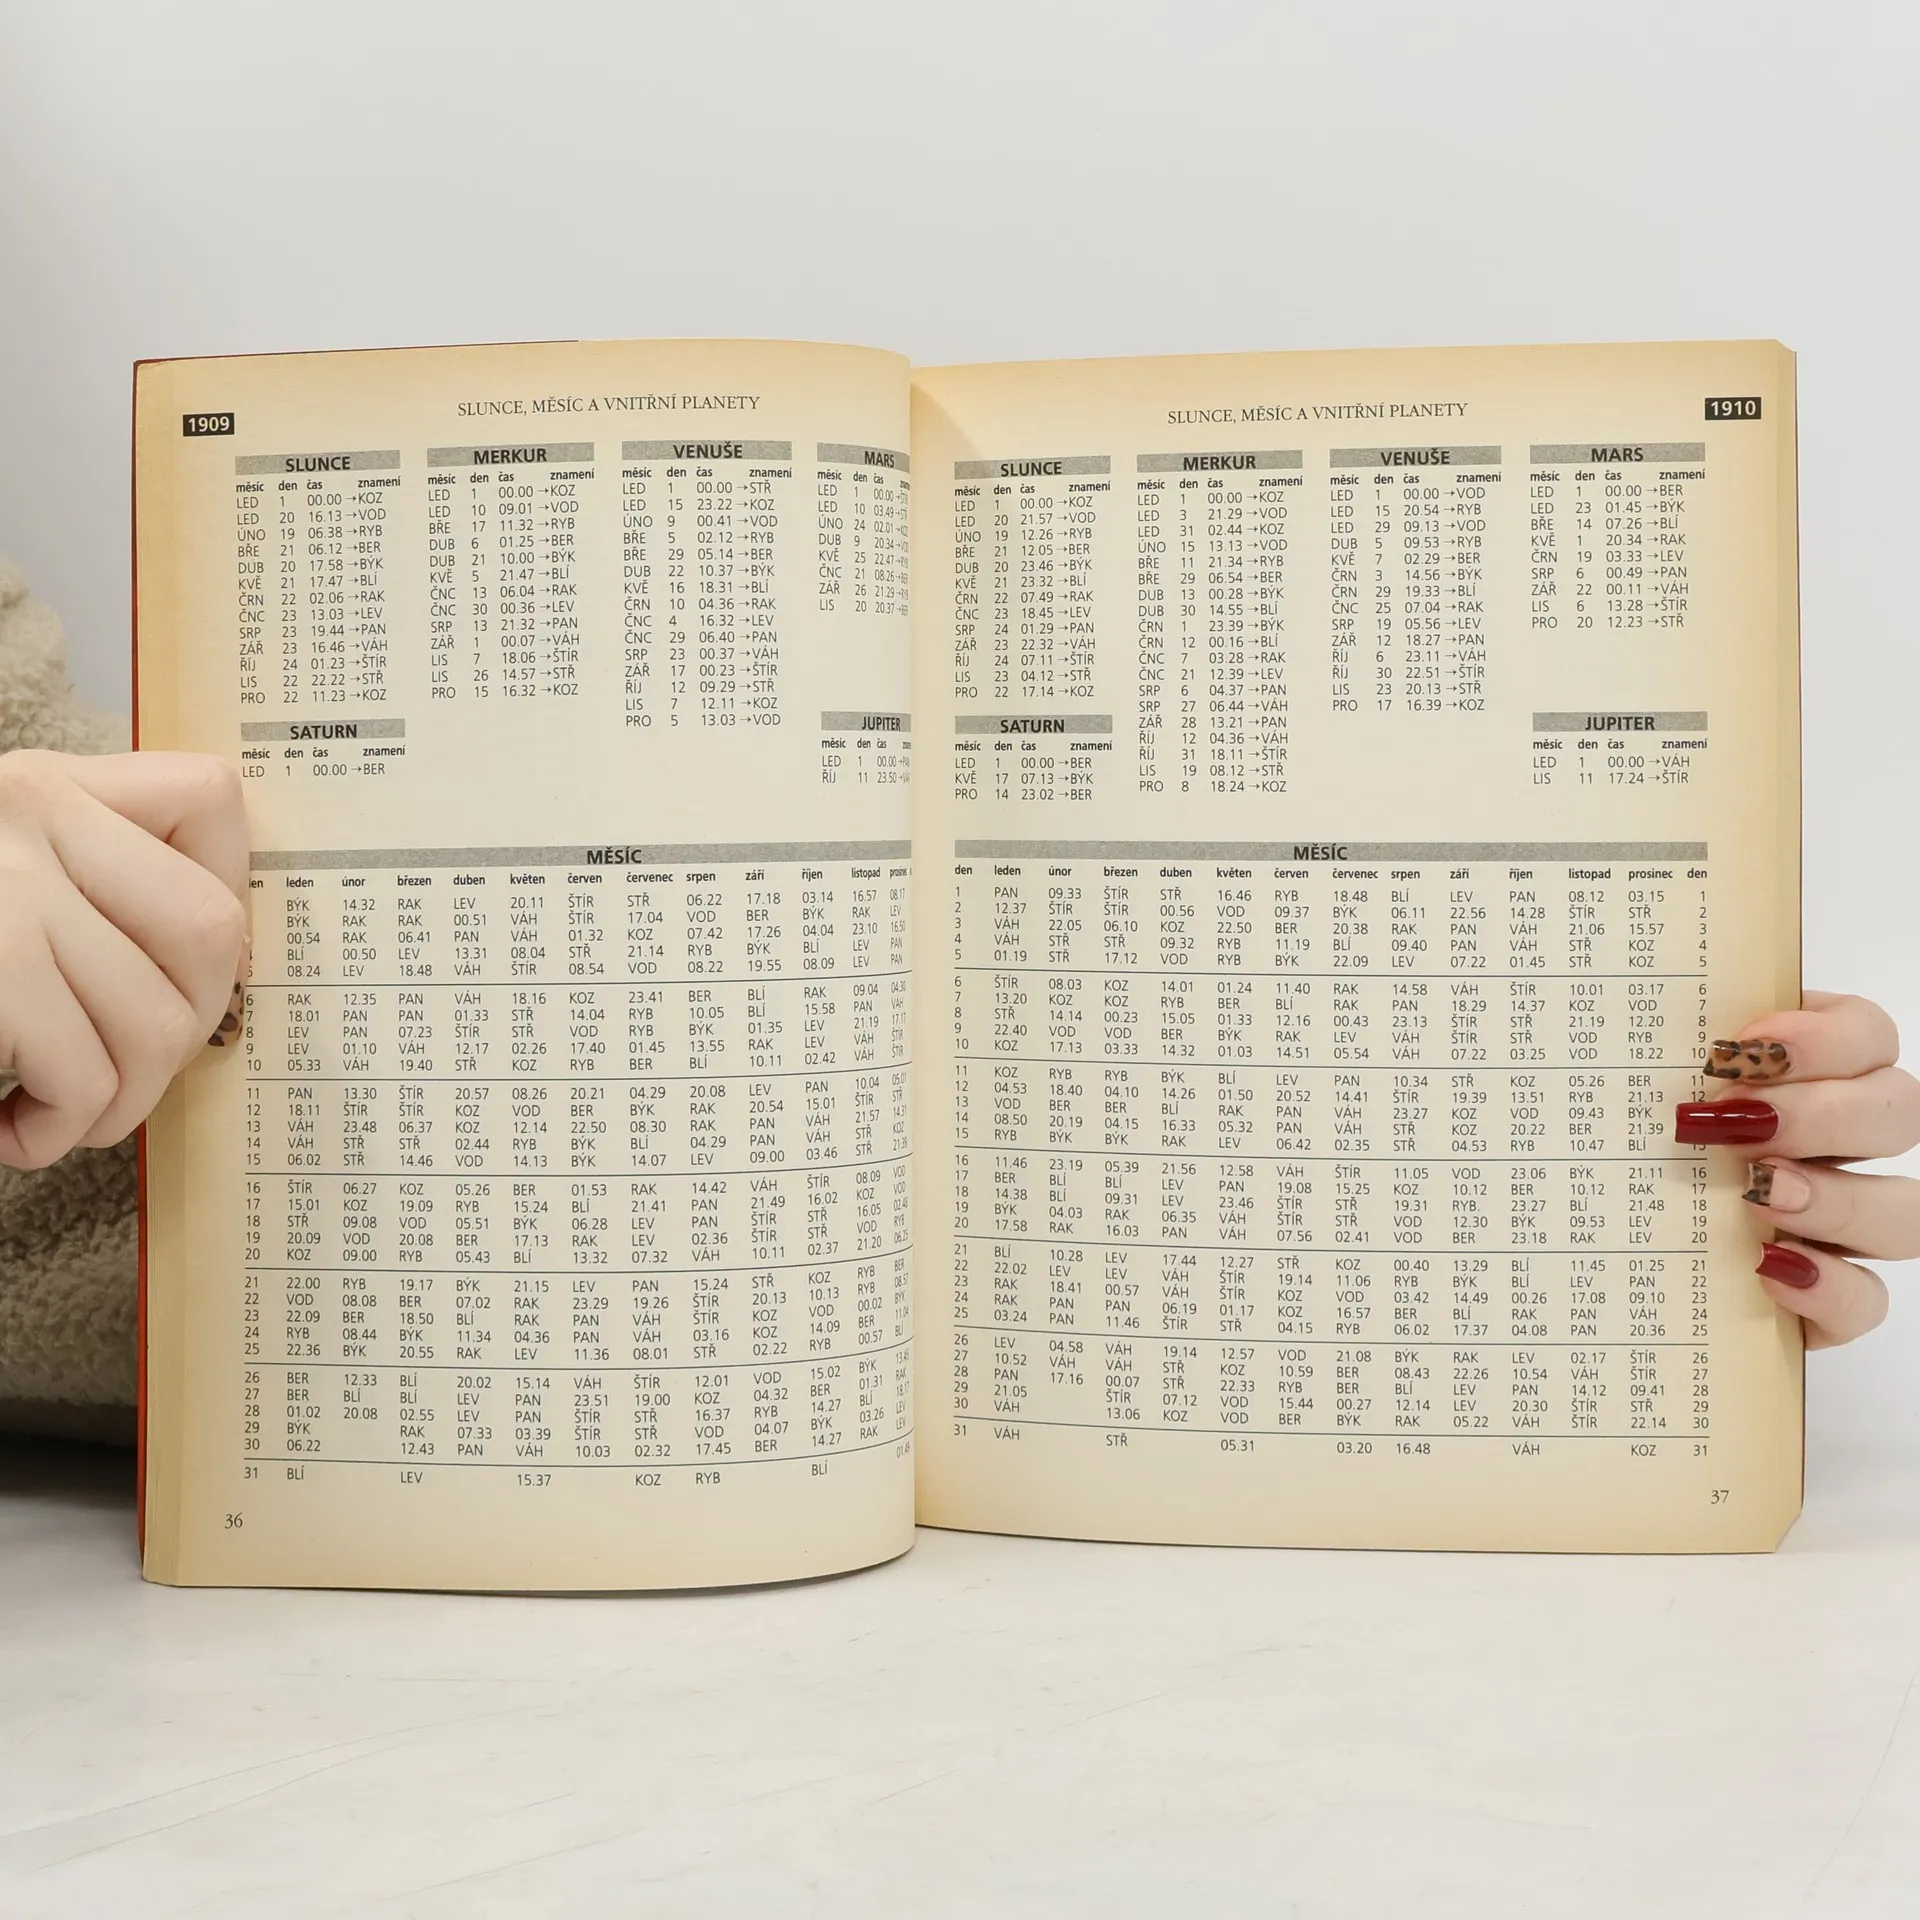 1909
SLUNCE, MĚSÍC A VNITŘNÍ PLANETY
SLUNCE
měsíc den čas znamení
LED 1 00.00 →KOZ
LED 20 16.13 →VOD
ÚNO 19 06.38 →RYB
BŘE 21 06.12 →BER
DUB 20 17.58 →BÝK
KVĚ 21 17.47 →BLÍ
ČRN 22 02.06 →RAK
ČNC 23 13.03 →LEV
SRP 23 19.44 →PAN
ZÁŘ 23 16.46 →VÁH
ŘÍJ 24 01.23 →ŠTÍR
LIS 22 22.22 →STŘ
PRO 22 11.23 →KOZ
MERKUR
měsíc den čas znamení
LED 1 00.00 →KOZ
LED 10 09.01 →VOD
BŘE 17 11.32 →RYB
DUB 6 01.25 →BER
DUB 21 10.00 →BÝK
KVĚ 5 21.47 →BLÍ
ČNC 13 06.04 →RAK
ČNC 30 00.36 →LEV
SRP 13 21.32 →PAN
ZÁŘ 1 00.07 →VÁH
LIS 7 18.06 →ŠTÍR
LIS 26 14.57 →STŘ
PRO 15 16.32 →KOZ
VENUŠE
měsíc den čas znamení
LED 1 00.00 →STŘ
LED 15 23.22 →KOZ
ÚNO 9 00.41 →VOD
BŘE 5 02.12 →RYB
BŘE 29 05.14 →BER
DUB 22 10.37 →BÝK
KVĚ 16 18.31 →BLÍ
ČRN 10 04.36 →RAK
ČNC 4 16.32 →LEV
ČNC 29 06.40 →PAN
SRP 23 00.37 →VÁH
ZÁŘ 17 00.23 →ŠTÍR
ŘÍJ 12 09.29 →STŘ
LIS 7 12.11 →KOZ
PRO 5 13.03 →VOD
MARS
měsíc den čas
LED 1 00.00
LED 10 03.49
ÚNO 24 02.01
DUB 9 20.34
KVĚ 25 22.47
ČNC 21 08.26
ZÁŘ 26 21.29
LIS 20 20.37
SATURN
měsíc den čas znamení
LED 1 00.00 →BER
JUPITER
měsíc den čas
LED 1 00.00
ŘÍJ 11 23.50
MĚSÍC
leden únor březen duben květen červen červenec srpen září říjen listopad prosinec
BÝK 14.32 RAK LEV 20.11 ŠTÍR STŘ 06.22 17.18 03.14 16.57 08.17
BÝK RAK RAK 00.51 VÁH ŠTÍR 17.04 VOD BER BÝK RAK LEV
00.54 RAK 06.41 PAN VÁH 01.32 KOZ 07.42 17.26 04.04 23.10 16.50
BLÍ 00.50 LEV 13.31 08.04 STŘ 21.14 RYB BÝK BLÍ LEV PAN
08.24 LEV 18.48 VÁH ŠTÍR 08.54 VOD 08.22 19.55 08.09 LEV PAN
6 RAK 12.35 PAN VÁH 18.16 KOZ 23.41 BER BLÍ RAK 09.04 04.30
7 18.01 PAN PAN 01.33 STŘ 14.04 RYB 10.05 BLÍ 15.58 PAN VÁH
8 LEV PAN 07.23 ŠTÍR STŘ VOD RYB BÝK 01.35 LEV 21.19 17.17
9 LEV 01.10 VÁH 12.17 02.26 17.40 01.45 13.55 RAK LEV VÁH ŠTÍR
10 05.33 VÁH 19.40 STŘ KOZ RYB BER BLÍ 10.11 02.42 VÁH ŠTÍR
11 PAN 13.30 ŠTÍR 20.57 08.26 20.21 04.29 20.08 LEV PAN 10.04 05.01
12 18.11 ŠTÍR ŠTÍR KOZ VOD BER BÝK RAK 20.54 15.01 ŠTÍR STŘ
13 VÁH 23.48 06.37 KOZ 12.14 22.50 08.30 RAK PAN VÁH 21.57 14.31
14 VÁH STŘ STŘ 02.44 RYB BÝK BLÍ 04.29 PAN VÁH STŘ KOZ
15 06.02 STŘ 14.46 VOD 14.13 BÝK 14.07 LEV 09.00 03.46 STŘ 21.39
16 ŠTÍR 06.27 KOZ 05.26 BER 01.53 RAK 14.42 VÁH ŠTÍR 08.09 VOD
17 15.01 KOZ 19.09 RYB 15.24 BLÍ 21.41 PAN 21.49 16.02 KOZ VOD
18 STŘ 09.08 VOD 05.51 BÝK 06.28 LEV PAN ŠTÍR STŘ 16.05 02.48
19 20.09 VOD 20.08 BER 17.13 RAK LEV 02.36 ŠTÍR STŘ VOD RYB
20 KOZ 09.00 RYB 05.43 BLÍ 13.32 07.32 VÁH 10.11 02.37 21.20 06.25
21 22.00 RYB 19.17 BÝK 21.15 LEV PAN 15.24 STŘ KOZ RYB BER
22 VOD 08.08 BER 07.02 RAK 23.29 19.26 ŠTÍR 20.13 10.13 RYB 08.57
23 22.09 BER 18.50 BLÍ RAK PAN VÁH ŠTÍR KOZ VOD 00.02 BÝK
24 RYB 08.44 BÝK 11.34 04.36 PAN VÁH 03.16 KOZ 14.09 BER 11.04
25 22.36 BÝK 20.55 RAK LEV 11.36 08.01 STŘ 02.22 RYB 00.57 BLÍ
26 BER 12.33 BLÍ 20.02 15.14 VÁH ŠTÍR 12.01 VOD 15.02 BÝK 13.45
27 BER BLÍ BLÍ LEV PAN 23.51 19.00 KOZ 04.32 BER 01.31 RAK
28 01.02 20.08 02.55 LEV PAN ŠTÍR STŘ 16.37 RYB 14.27 BLÍ 18.17
29 BÝK RAK 07.33 03.39 ŠTÍR STŘ VOD 04.07 BÝK 03.26 LEV
30 06.22 12.43 PAN VÁH 10.03 02.32 17.45 BER 14.27 RAK LEV
31 BLÍ LEV 15.37 KOZ RYB BLÍ
36
SLUNCE, MĚSÍC A VNITŘNÍ PLANETY
1910
SLUNCE
měsíc den čas znamení
LED 1 00.00 →KOZ
LED 20 21.57 →VOD
ÚNO 19 12.26 →RYB
BŘE 21 12.05 →BER
DUB 20 23.46 →BÝK
KVĚ 21 23.32 →BLÍ
ČRN 22 07.49 →RAK
ČNC 23 18.45 →LEV
SRP 24 01.29 →PAN
ZÁŘ 23 22.32 →VÁH
ŘÍJ 24 07.11 →ŠTÍR
LIS 23 04.12 →STŘ
PRO 22 17.14 →KOZ
MERKUR
měsíc den čas znamení
LED 1 00.00 →KOZ
LED 3 21.29 →VOD
LED 31 02.44 →KOZ
ÚNO 15 13.13 →VOD
BŘE 11 21.34 →RYB
BŘE 29 06.54 →BER
DUB 13 00.28 →BÝK
DUB 30 14.55 →BLÍ
ČRN 1 23.39 →BÝK
ČRN 12 00.16 →BLÍ
ČNC 7 03.28 →RAK
ČNC 21 12.39 →LEV
SRP 6 04.37 →PAN
SRP 27 06.44 →VÁH
ZÁŘ 28 13.21 →PAN
ŘÍJ 12 04.36 →VÁH
ŘÍJ 31 18.11 →ŠTÍR
LIS 19 08.12 →STŘ
PRO 8 18.24 →KOZ
VENUŠE
měsíc den čas znamení
LED 1 00.00 →VOD
LED 15 20.54 →RYB
LED 29 09.13 →VOD
DUB 5 09.53 →RYB
KVĚ 7 02.29 →BER
ČRN 3 14.56 →BÝK
ČRN 29 19.33 →BLÍ
ČNC 25 07.04 →RAK
SRP 19 05.56 →LEV
ZÁŘ 12 18.27 →PAN
ŘÍJ 6 23.11 →VÁH
ŘÍJ 30 22.51 →ŠTÍR
LIS 23 20.13 →STŘ
PRO 17 16.39 →KOZ
MARS
měsíc den čas znamení
LED 1 00.00 →BER
LED 23 01.45 →BÝK
BŘE 14 07.26 →BLÍ
KVĚ 1 20.34 →RAK
ČRN 19 03.33 →LEV
SRP 6 00.49 →PAN
ZÁŘ 22 00.11 →VÁH
LIS 6 13.28 →ŠTÍR
PRO 20 12.23 →STŘ
SATURN
měsíc den čas znamení
LED 1 00.00 →BER
KVĚ 17 07.13 →BÝK
PRO 14 23.02 →BER
JUPITER
měsíc den čas znamení
LED 1 00.00 →VÁH
LIS 11 17.24 →ŠTÍR
MĚSÍC
den leden únor březen duben květen červen červenec srpen září říjen listopad prosinec den
1 PAN 09.33 ŠTÍR STŘ 16.46 RYB 18.48 BLÍ LEV PAN 08.12 03.15 1
2 12.37 ŠTÍR ŠTÍR 00.56 VOD 09.37 BÝK 06.11 22.56 14.28 ŠTÍR STŘ 2
3 VÁH 22.05 06.10 KOZ 22.50 BER 20.38 RAK PAN VÁH 21.06 15.57 3
4 VÁH STŘ STŘ 09.32 RYB 11.19 BLÍ 09.40 PAN VÁH STŘ KOZ 4
5 01.19 STŘ 17.12 VOD RYB BÝK 22.09 LEV 07.22 01.45 STŘ KOZ 5
6 ŠTÍR 08.03 KOZ 14.01 01.24 11.40 RAK 14.58 VÁH ŠTÍR 10.01 03.17 6
7 13.20 KOZ KOZ RYB BER BLÍ RAK PAN 18.29 14.37 KOZ VOD 7
8 STŘ 14.14 00.23 15.05 01.33 12.16 00.43 23.13 ŠTÍR STŘ 21.19 12.20 8
9 22.40 VOD VOD BER BÝK RAK LEV VÁH ŠTÍR STŘ VOD RYB 9
10 KOZ 17.13 03.33 14.32 01.03 14.51 05.54 VÁH 07.22 03.25 VOD 18.22 10
11 KOZ RYB RYB BÝK BLÍ LEV PAN 10.34 STŘ KOZ 05.26 BER 11
12 04.53 18.40 04.10 14.26 01.50 20.52 14.41 ŠTÍR 19.39 13.51 RYB 21.13 12
13 VOD BER BER BLÍ RAK PAN VÁH 23.27 KOZ VOD 09.43 BÝK
14 08.50 20.19 04.15 16.33 05.32 PAN VÁH STŘ KOZ 20.22 BER 21.39
15 RYB BÝK BÝK RAK LEV 06.42 02.35 STŘ 04.53 RYB 10.47 BLÍ
16 11.46 23.19 05.39 21.56 12.58 VÁH ŠTÍR 11.05 VOD 23.06 BÝK 21.11 16
17 BER BLÍ BLÍ LEV PAN 19.08 15.25 KOZ 10.12 BER 10.12 RAK 17
18 14.38 BLÍ 09.31 LEV 23.46 ŠTÍR STŘ 19.31 RYB. 23.27 BLÍ 21.48 18
19 BÝK 04.03 RAK 06.35 VÁH ŠTÍR STŘ VOD 12.30 BÝK 09.53 LEV 19
20 17.58 RAK 16.03 PAN VÁH 07.56 02.41 VOD BER 23.18 RAK LEV 20
21 BLÍ 10.28 LEV 17.44 12.27 STŘ KOZ 00.40 13.29 BLÍ 11.45 01.25 21
22 22.02 LEV LEV VÁH ŠTÍR 19.14 11.06 RYB BÝK BLÍ LEV PAN 22
23 RAK 18.41 00.57 VÁH ŠTÍR KOZ VOD 03.42 14.49 00.26 17.08 09.10 23
24 RAK PAN PAN 06.19 01.17 KOZ 16.57 BER BLÍ RAK PAN VÁH 24
25 03.24 PAN 11.46 ŠTÍR STŘ 04.15 RYB 06.02 17.37 04.08 PAN 20.36 25
26 LEV 04.58 VÁH 19.14 12.57 VOD 21.08 BÝK RAK LEV 02.17 ŠTÍR 26
27 10.52 VÁH VÁH STŘ KOZ 10.59 BER 08.43 22.26 10.54 VÁH ŠTÍR 27
28 PAN 17.16 00.07 STŘ 22.33 RYB BER BLÍ LEV PAN 14.12 09.41 28
29 21.05 ŠTÍR 07.12 VOD 15.44 00.27 12.14 LEV 20.30 ŠTÍR STŘ 29
30 VÁH 13.06 KOZ VOD BER BÝK RAK 05.22 VÁH ŠTÍR 22.14 30
31 VÁH STŘ 05.31 03.20 16.48 VÁH KOZ 31
37